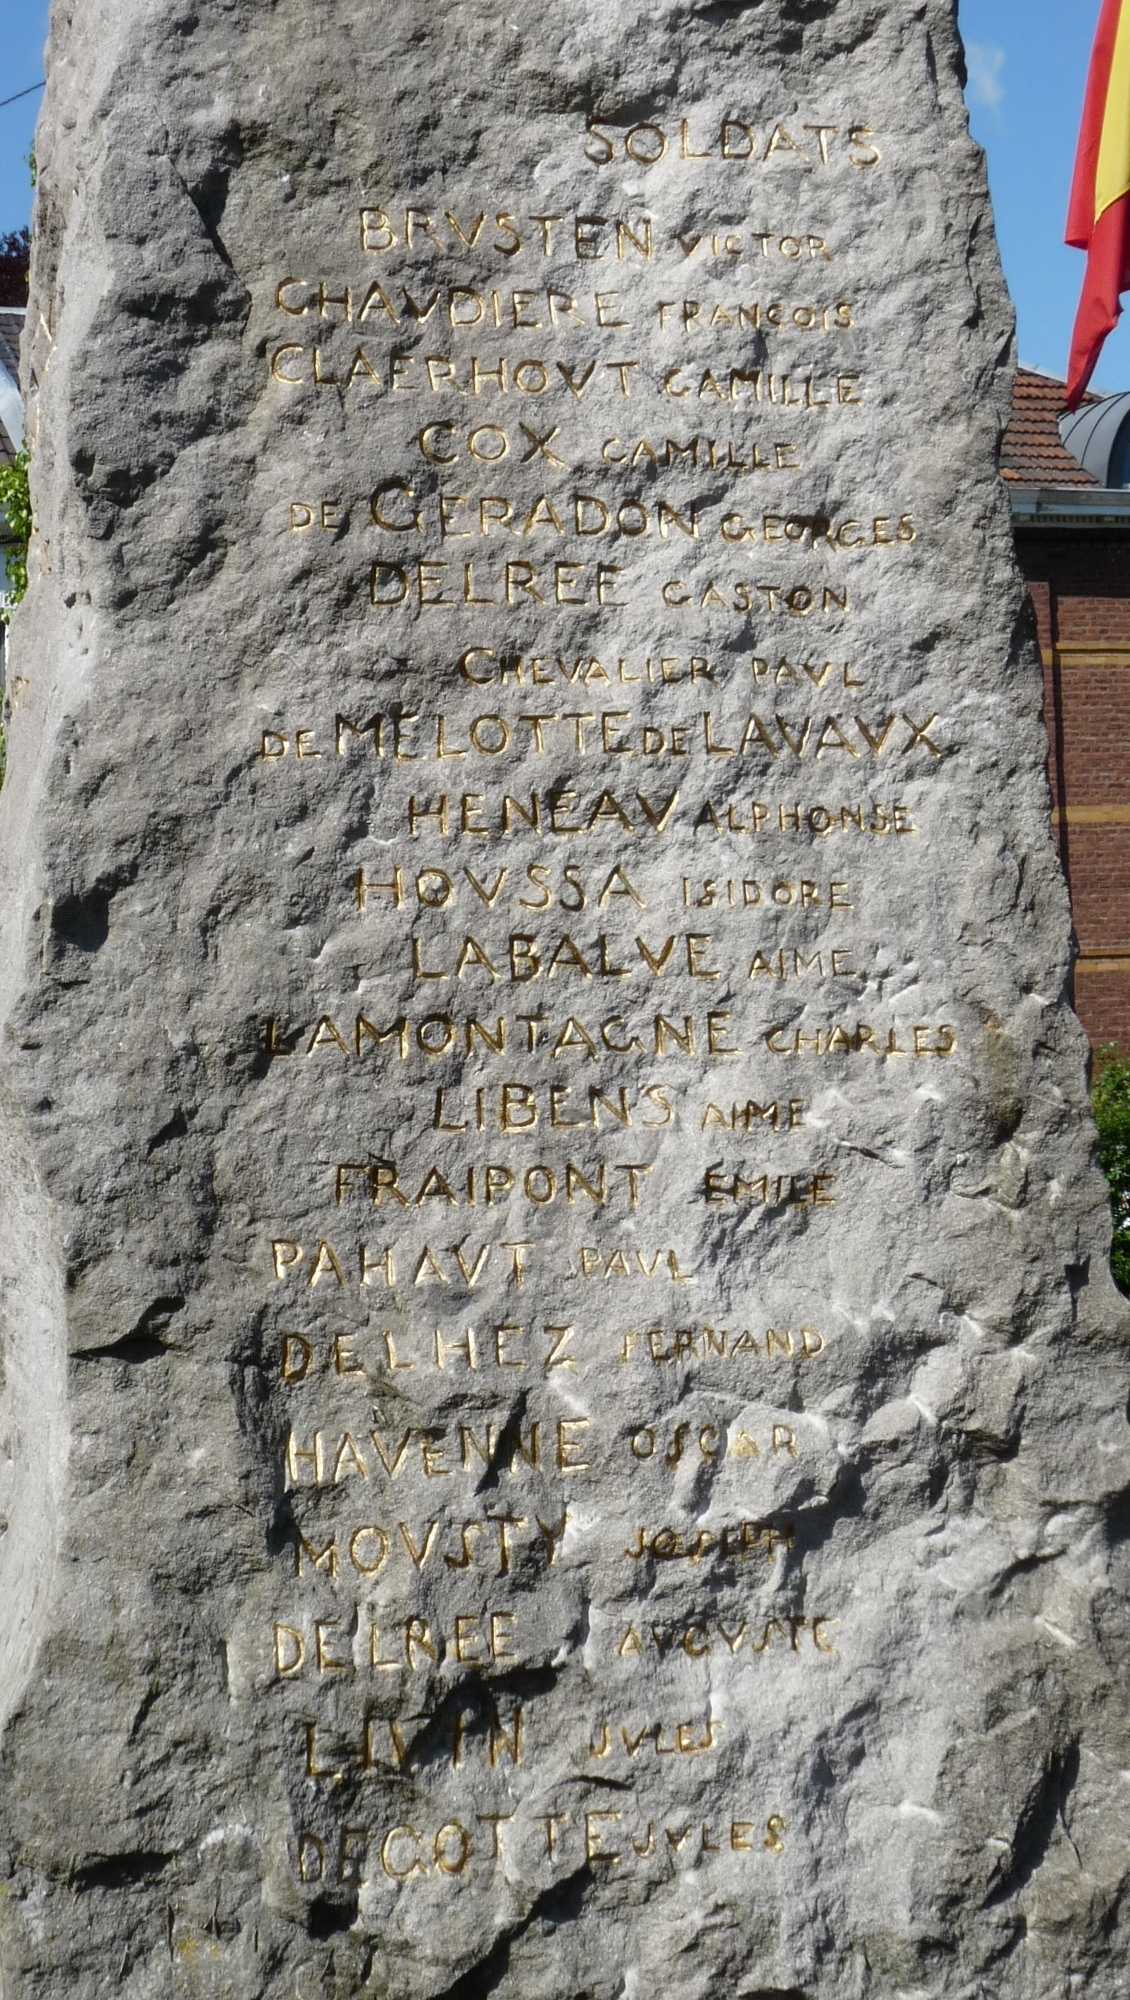 SOLDATS
BRVSTEN VICTOR
CHAVDIERE FRANCOIS
CLAERHOVT CAMILLE
COX CAMILLE
DE GERADON GEORGES
DELREE GASTON
CHEVALIER PAVL
DE MELOTTE DE LAVAVX
HENEAV ALPHONSE
HOVSSA ISIDORE
LABALVE AIME
LAMONTAGNE CHARLES
LIBENS AIME
FRAIPONT EMILE
PAHAVT PAVL
DELHEZ FERNAND
HAVENNE OSCAR
MOVSTY JOSEPH
DELREE AVGVSTE
LIVIN JVLES
DEGOTTE JVLES